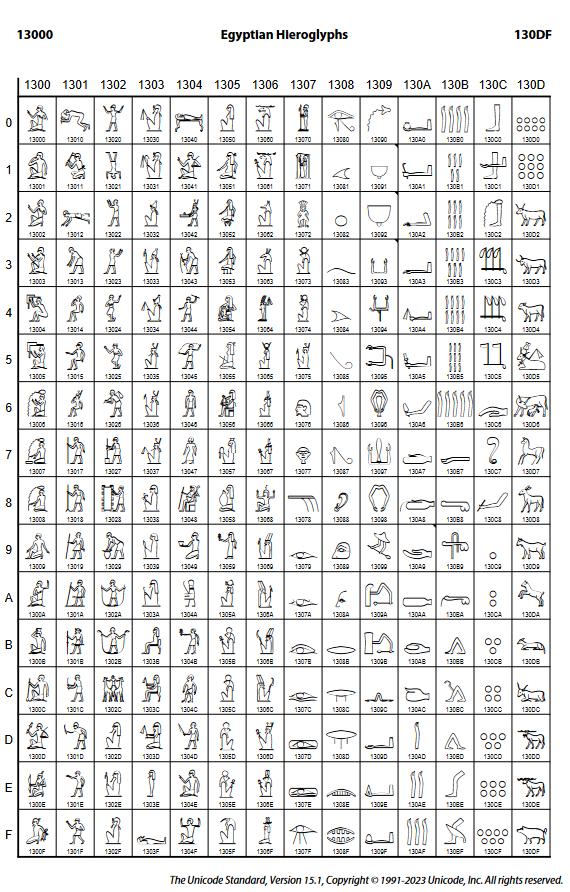 13000 Egyptian Hieroglyphs 130DF
1300 1301 1302 1303 1304 1305 1306 1307 1308 1309 130A 130B 130C 130D
0 𓀀 𓀐 𓀠 𓀰 𓁀 𓁐 𓁠 𓁰 𓂀 𓂐 𓂠 𓂰 𓃀 𓃐
13000 13010 13020 13030 13040 13050 13060 13070 13080 13090 130A0 130B0 130C0 130D0
1 𓀁 𓀑 𓀡 𓀱 𓁁 𓁑 𓁡 𓁱 𓂁 𓂑 𓂡 𓂱 𓃁 𓃑
13001 13011 13021 13031 13041 13051 13061 13071 13081 13091 130A1 130B1 130C1 130D1
2 𓀂 𓀒 𓀢 𓀲 𓁂 𓁒 𓁢 𓁲 𓂂 𓂒 𓂢 𓂲 𓃂 𓃒
13002 13012 13022 13032 13042 13052 13062 13072 13082 13092 130A2 130B2 130C2 130D2
3 𓀃 𓀓 𓀣 𓀳 𓁃 𓁓 𓁣 𓁳 𓂃 𓂓 𓂣 𓂳 𓃃 𓃓
13003 13013 13023 13033 13043 13053 13063 13073 13083 13093 130A3 130B3 130C3 130D3
4 𓀄 𓀔 𓀤 𓀴 𓁄 𓁔 𓁤 𓁴 𓂄 𓂔 𓂤 𓂴 𓃄 𓃔
13004 13014 13024 13034 13044 13054 13064 13074 13084 13094 130A4 130B4 130C4 130D4
5 𓀅 𓀕 𓀥 𓀵 𓁅 𓁕 𓁥 𓁵 𓂅 𓂕 𓂥 𓂵 𓃅 𓃕
13005 13015 13025 13035 13045 13055 13065 13075 13085 13095 130A5 130B5 130C5 130D5
6 𓀆 𓀖 𓀦 𓀶 𓁆 𓁖 𓁦 𓁶 𓂆 𓂖 𓂦 𓂶 𓃆 𓃖
13006 13016 13026 13036 13046 13056 13066 13076 13086 13096 130A6 130B6 130C6 130D6
7 𓀇 𓀗 𓀧 𓀷 𓁇 𓁗 𓁧 𓁷 𓂇 𓂗 𓂧 𓂷 𓃇 𓃗
13007 13017 13027 13037 13047 13057 13067 13077 13087 13097 130A7 130B7 130C7 130D7
8 𓀈 𓀘 𓀨 𓀸 𓁈 𓁘 𓁨 𓁸 𓂈 𓂘 𓂨 𓂸 𓃈 𓃘
13008 13018 13028 13038 13048 13058 13068 13078 13088 13098 130A8 130B8 130C8 130D8
9 𓀉 𓀙 𓀩 𓀹 𓁉 𓁙 𓁩 𓁹 𓂉 𓂙 𓂩 𓂹 𓃉 𓃙
13009 13019 13029 13039 13049 13059 13069 13079 13089 13099 130A9 130B9 130C9 130D9
A 𓀊 𓀚 𓀪 𓀺 𓁊 𓁚 𓁪 𓁺 𓂊 𓂚 𓂪 𓂺 𓃊 𓃚
1300A 1301A 1302A 1303A 1304A 1305A 1306A 1307A 1308A 1309A 130AA 130BA 130CA 130DA
B 𓀋 𓀛 𓀫 𓀻 𓁋 𓁛 𓁫 𓁻 𓂋 𓂛 𓂫 𓂻 𓃋 𓃛
1300B 1301B 1302B 1303B 1304B 1305B 1306B 1307B 1308B 1309B 130AB 130BB 130CB 130DB
C 𓀌 𓀜 𓀬 𓀼 𓁌 𓁜 𓁬 𓁼 𓂌 𓂜 𓂬 𓂼 𓃌 𓃜
1300C 1301C 1302C 1303C 1304C 1305C 1306C 1307C 1308C 1309C 130AC 130BC 130CC 130DC
D 𓀍 𓀝 𓀭 𓀽 𓁍 𓁝 𓁭 𓁽 𓂍 𓂝 𓂭 𓂽 𓃍 𓃝
1300D 1301D 1302D 1303D 1304D 1305D 1306D 1307D 1308D 1309D 130AD 130BD 130CD 130DD
E 𓀎 𓀞 𓀮 𓀾 𓁎 𓁞 𓁮 𓁾 𓂎 𓂞 𓂮 𓂾 𓃎 𓃞
1300E 1301E 1302E 1303E 1304E 1305E 1306E 1307E 1308E 1309E 130AE 130BE 130CE 130DE
F 𓀏 𓀟 𓀯 𓀿 𓁏 𓁟 𓁯 𓁿 𓂏 𓂟 𓂯 𓂿 𓃏 𓃟
1300F 1301F 1302F 1303F 1304F 1305F 1306F 1307F 1308F 1309F 130AF 130BF 130CF 130DF
The Unicode Standard, Version 15.1, Copyright © 1991-2023 Unicode, Inc. All rights reserved.